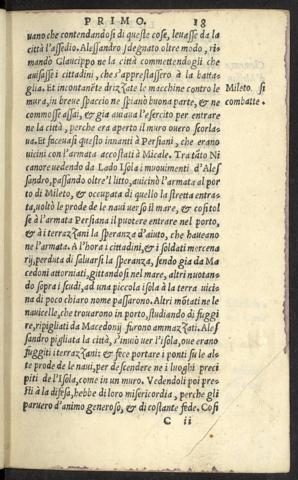 PRIMO. 18
uano che contendandosi di queste cose, leuasse da la
città l'assedio. Alessandro sdegnato oltre modo, ri-
mandò Glaucippo ne la città commettendogli che
auisasse i cittadini, che s'apprestassero à la batta-
glia. Et incontanẽte drizzate le macchine contro le
mura, in breue spaccio ne spianò buona parte, & ne
commosse assai, & gia auaua l'esercito per entrare
ne la città, perche era aperto il muro ouero scorla-
ua. Et faceuasi questo innanti à Persiani, che erano
uicini con l'armata accostati à Micale. Tra tãto Ni
canore uedendo da Lado Isola i muouimenti d'Ales
sandro, passando oltre'l litto, auicinò l'armata al por
to di Mileto, & occupata di quello la stretta entra-
ta, uoltò le prode de le naui uerso il mare, & cosi tol
se à l'armata Persiana il puotere entrare nel porto,
& à i terazzani la speranza d'aiuto, che haueano
ne l'armata. A l'hora i cittadini, & i soldati mercena
rij, perduta di saluarsi la speranza, sendo gia da Ma
cedoni attorniati, gittandosi nel mare, altri nuotan-
do sopra i scudi, ad una piccola isola à la terra uicina
di poco chiaro nome passarono. Altri mõtati ne le
nauicelle, che trouarono in porto, studiando di fuggi
re, ripigliati da Macedonij furono ammazzati. Ales
sandro pigliata la città, s'inuiò uer l'isola, oue erano
fuggiti i terrazzani: & fece portare i ponti su le al-
te prode de le naui, per descendere ne i luoghi preci
piti de l'Isola, come in un muro. Vedendoli poi pre-
sti à la difesa, hebbe di loro misericordia, perche gli
paruero d'animo generoso, & di costante fede. Cosi
C ii
Mileto si
combatte.